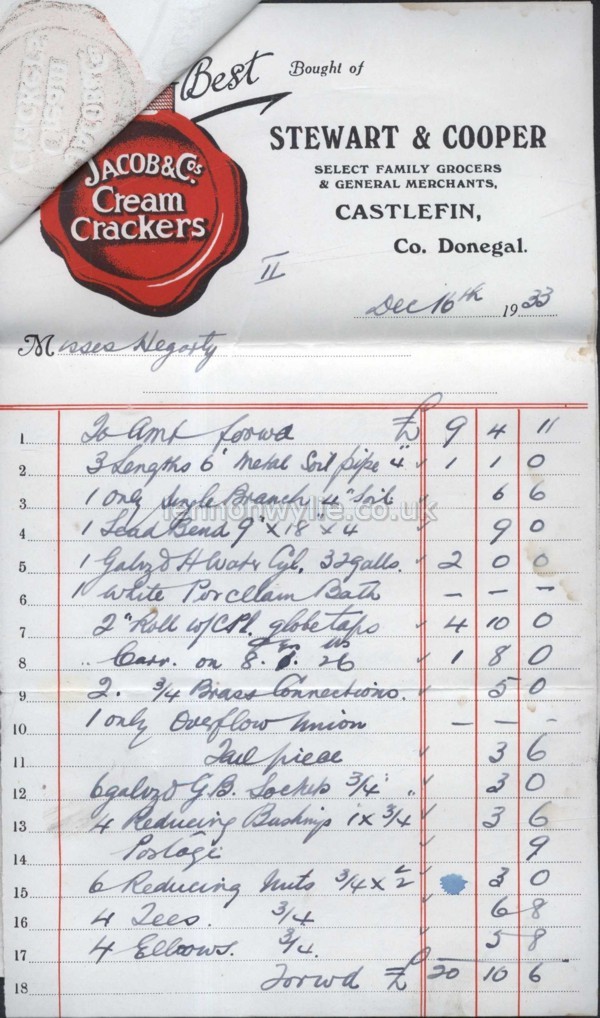 Best
Bought of
STEWART & COOPER
SELECT FAMILY GROCERS
& GENERAL MERCHANTS,
CASTLEFIN,
Co. Donegal.
JACOB & Co's
Cream
Crackers
II
Dec 16th 1933
Misses Hegarty
1 To Amt forwd £ 9 4 11
2 3 Lengths 6' Metal Soil pipe 4" 1 1 0
3 1 only single Branch 4" Soil 6 6
4 1 Lead Bend 9" x 18" x 4 9 0
5 1 Galvzd H Water Cyl. 32 galls. 2 0 0
6 1 White Porcelain Bath — — —
7 2" Roll w/ CPl. globe taps 4 10 0
8 " Carr. on 8. 26 1 8 0
9 2. 3/4 Brass Connections. 5 0
10 1 only Overflow Union — — —
11 Tail piece 3 6
12 6 galvzd G.B. Sockets 3/4" 3 0
13 4 Reducing Bushings 1 x 3/4 3 6
14 Postage 9
15 6 Reducing Nuts 3/4 x 1/2 3 0
16 4 Tees. 3/4 6 8
17 4 Elbows. 3/4. 5 8
18 Forwd £ 20 10 6
lennonwylie.co.uk